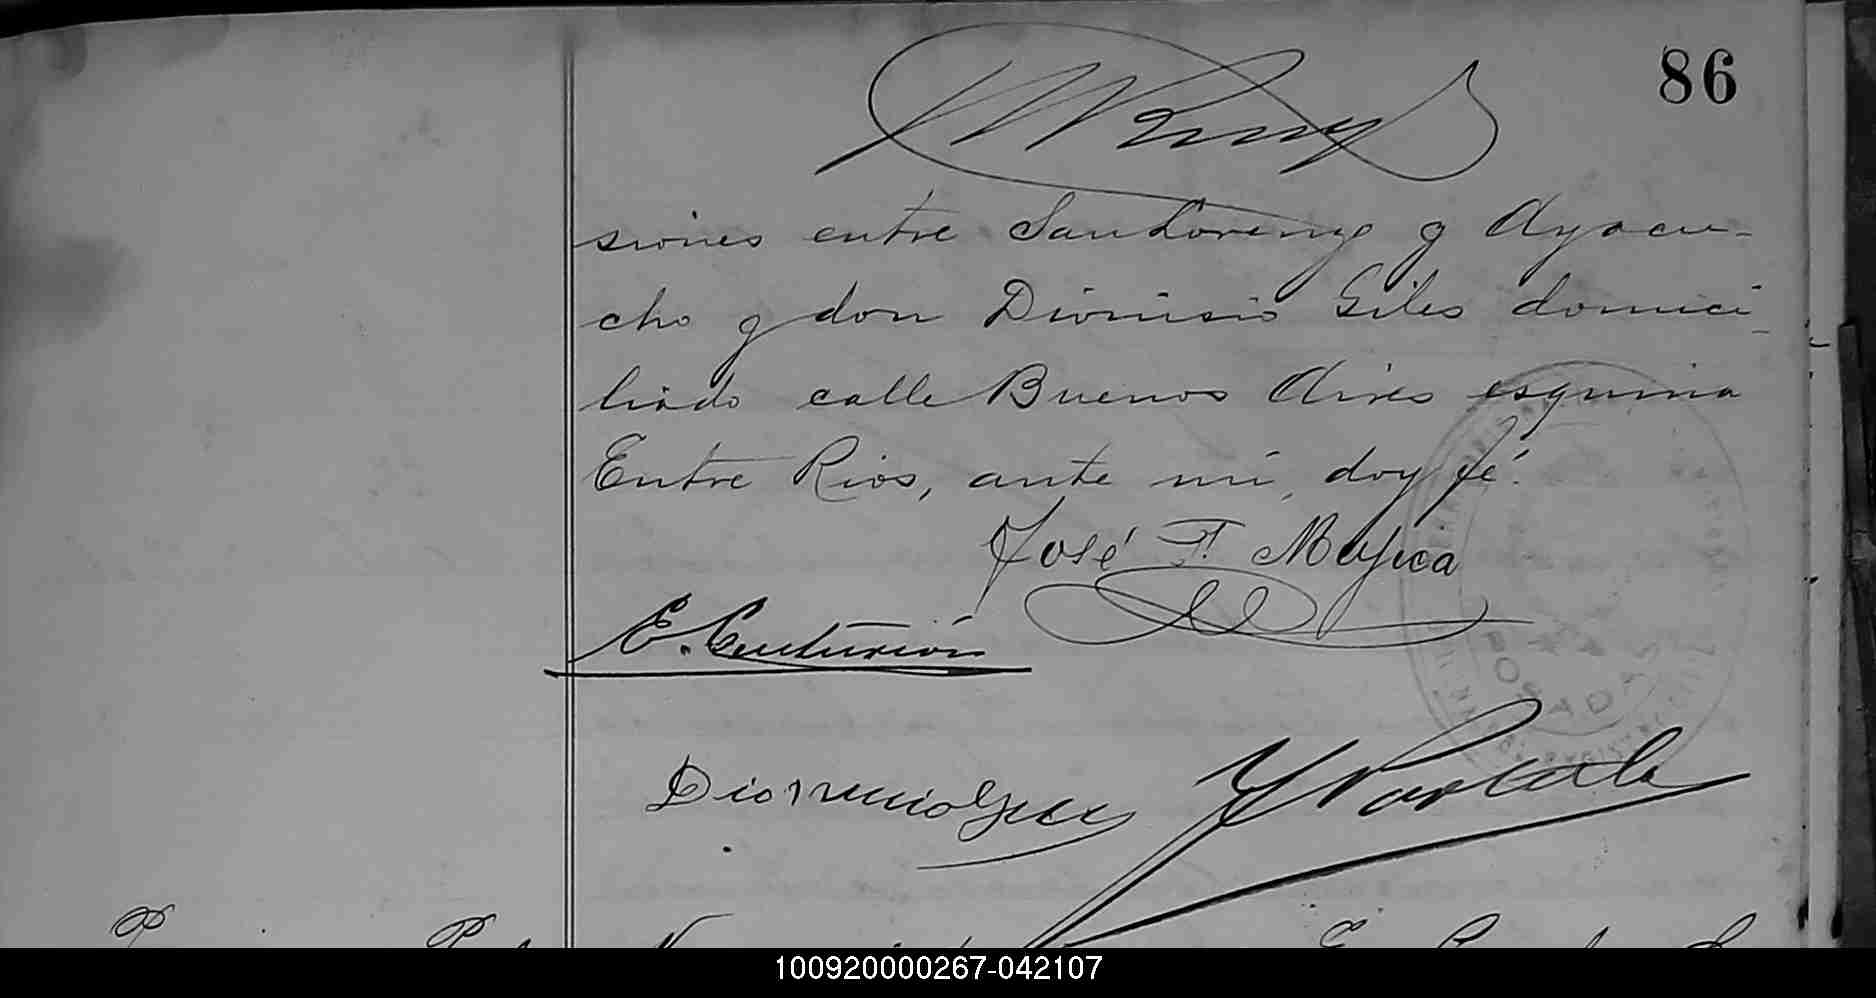 86
siones entre San Lorenzo y Ayacu-
cho y don Dionisio Giles domici-
liado calle Buenos Aires esquina
Entre Rios, ante mi, doy fé.
José F. Mujica
E. Centurión
Dionicio Giles
100920000267-042107